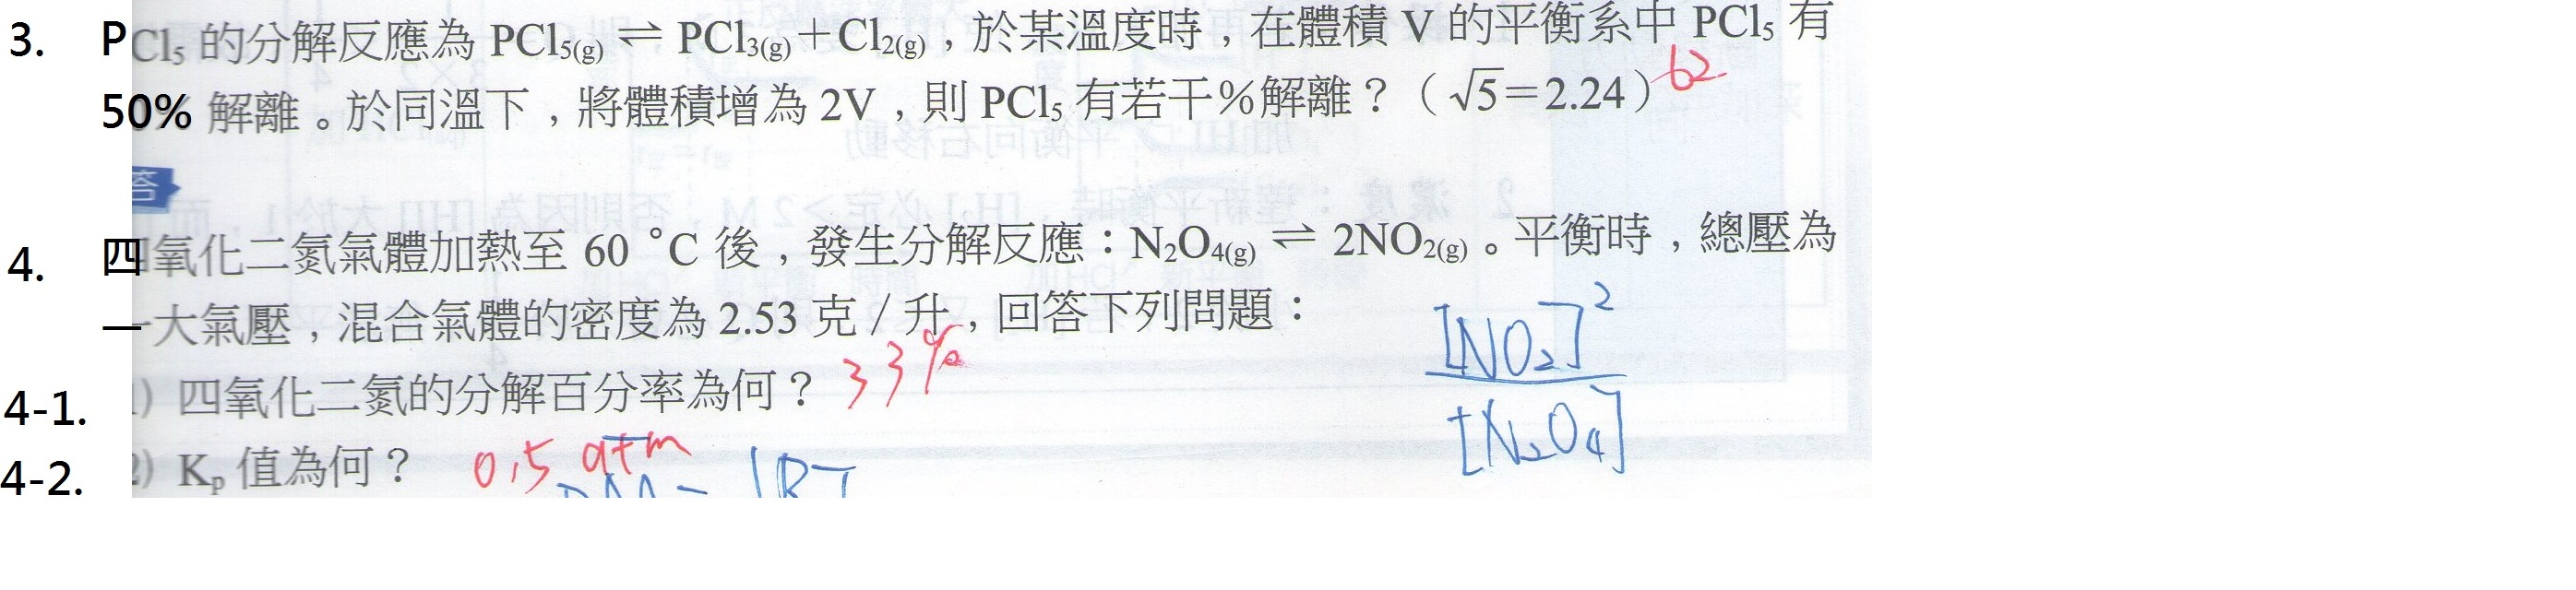 3. PCl5 的分解反應為 PCl5(g) ⇌ PCl3(g)+Cl2(g)，於某溫度時，在體積 V 的平衡系中 PCl5 有
50% 解離。於同溫下，將體積增為 2V，則 PCl5 有若干％解離？（√5=2.24） 62.
答
4. 四氧化二氮氣體加熱至 60 °C 後，發生分解反應：N2O4(g) ⇌ 2NO2(g)。平衡時，總壓為
一大氣壓，混合氣體的密度為 2.53 克／升，回答下列問題：
[NO2]²
4-1. 1) 四氧化二氮的分解百分率為何？ 33%
[N2O4]
4-2. 2) Kp 值為何？ 0.5 atm